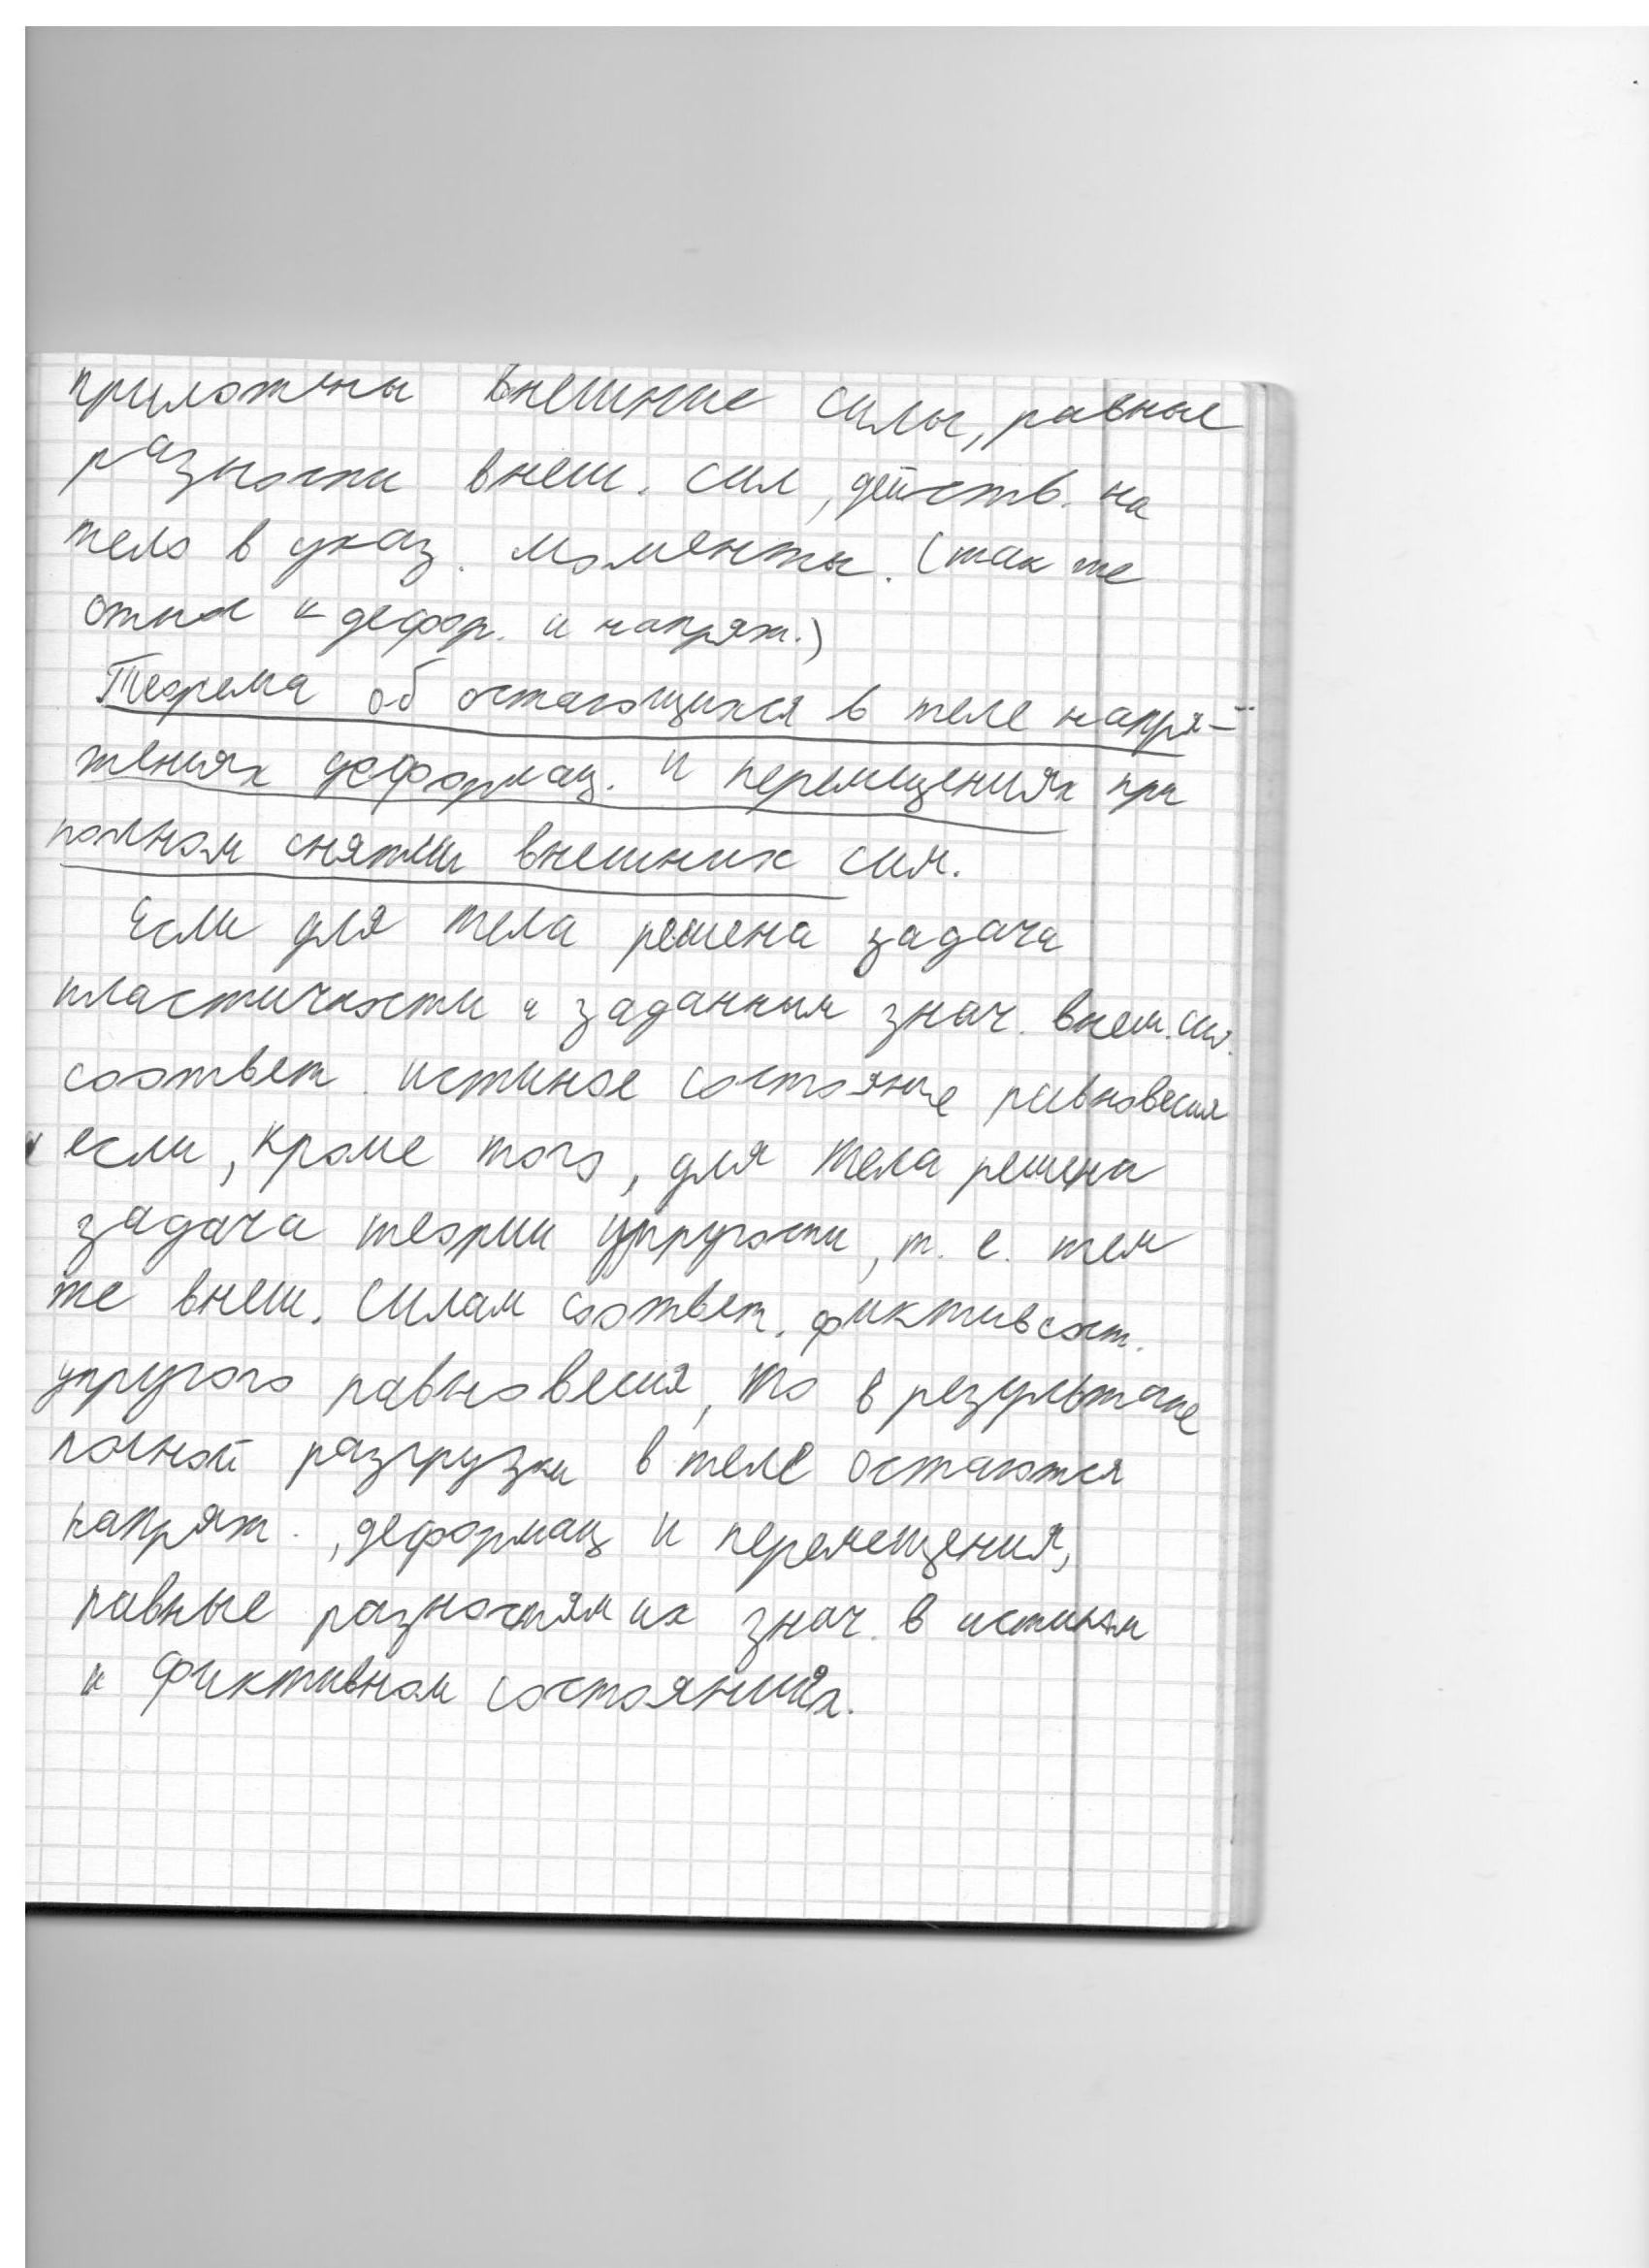 приложены внешние силы, равные
разности внеш. сил, действ. на
тело в указ. моменты. (так же
относ к дефор. и напряж.)
Теорема об остающихся в теле напря-
жениях деформац. и перемещениях при
полном снятии внешних сил.
Если для тела решена задача
пластичности и заданным знач. внеш. сил.
соответ. истиное состояние равновесия
и если, кроме того, для тела решена
задача теории упругости, т. е. тем
же внеш. силам соответ. фиктив сост.
упругого равновесия, то в результате
полной разгрузки в теле остаются
напряж., деформац и перемещения,
равные разностям их знач. в истином
и фиктивном состояниях.